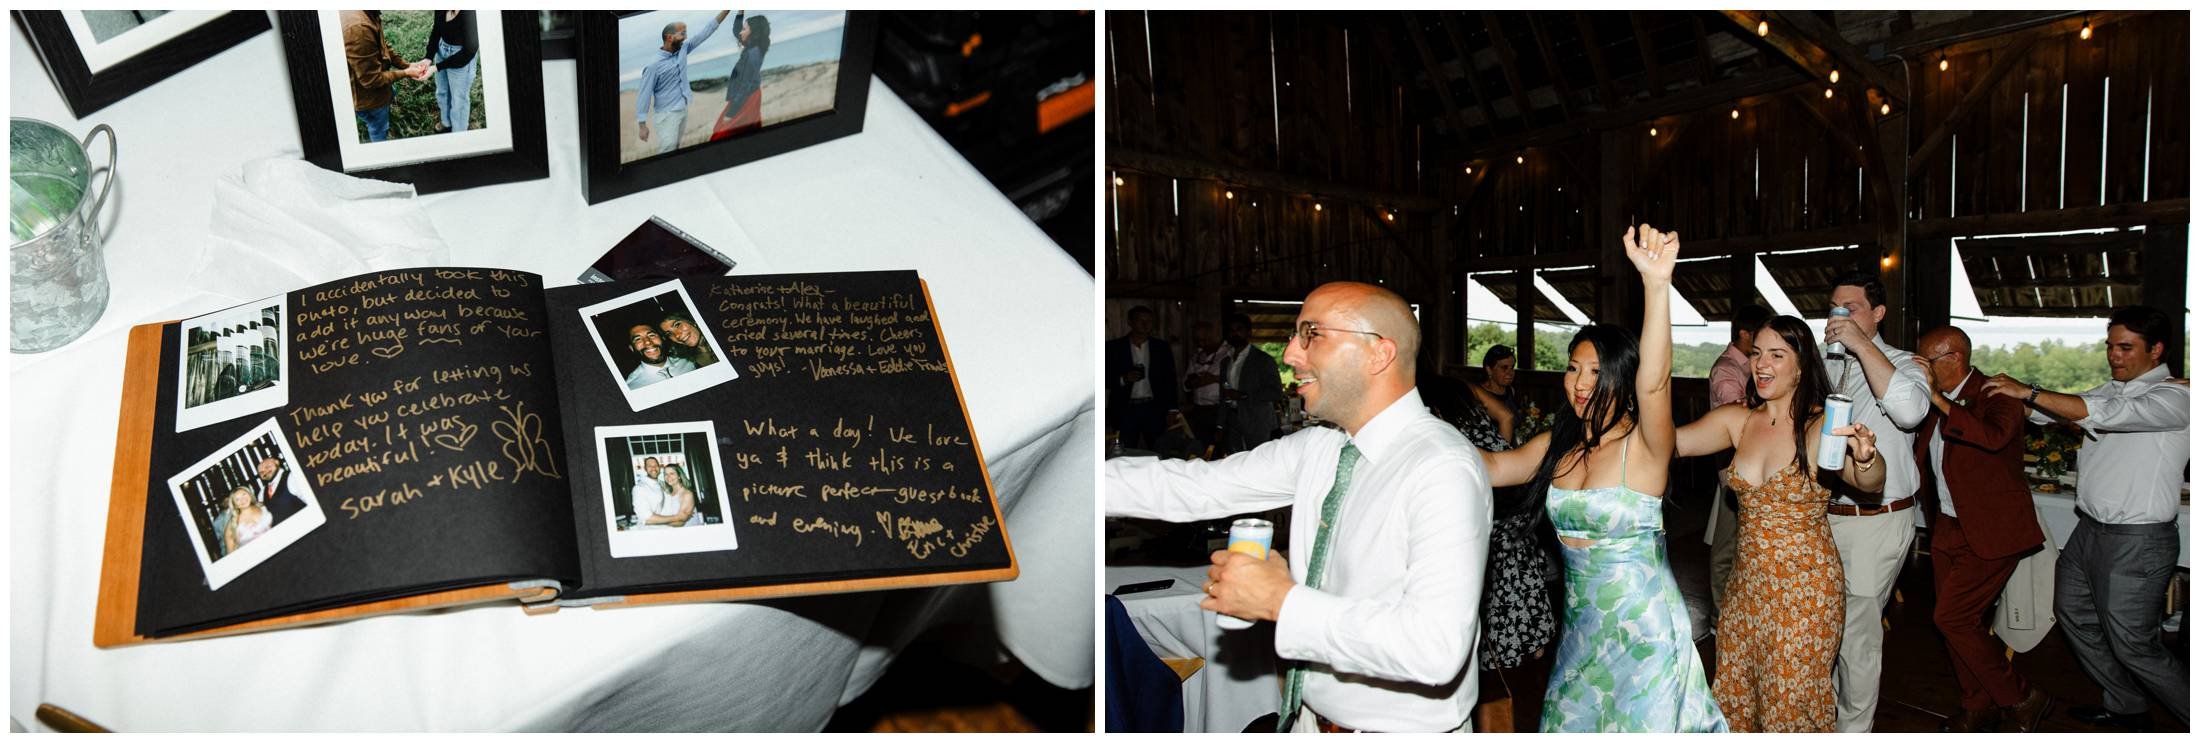 I accidentally took this
photo, but decided to
add it anyway because
we're huge fans of your
love.
Thank you for letting us
help you celebrate
today. It was
beautiful!
Sarah + Kyle
Katherine + Alex -
Congrats! What a beautiful
ceremony. We have laughed and
cried several times. Cheers
to your marriage. Love you
guys! - Vanessa + Eddie
What a day! We love
ya & think this is a
picture perfect guestbook
and evening.
Eric +
Christine